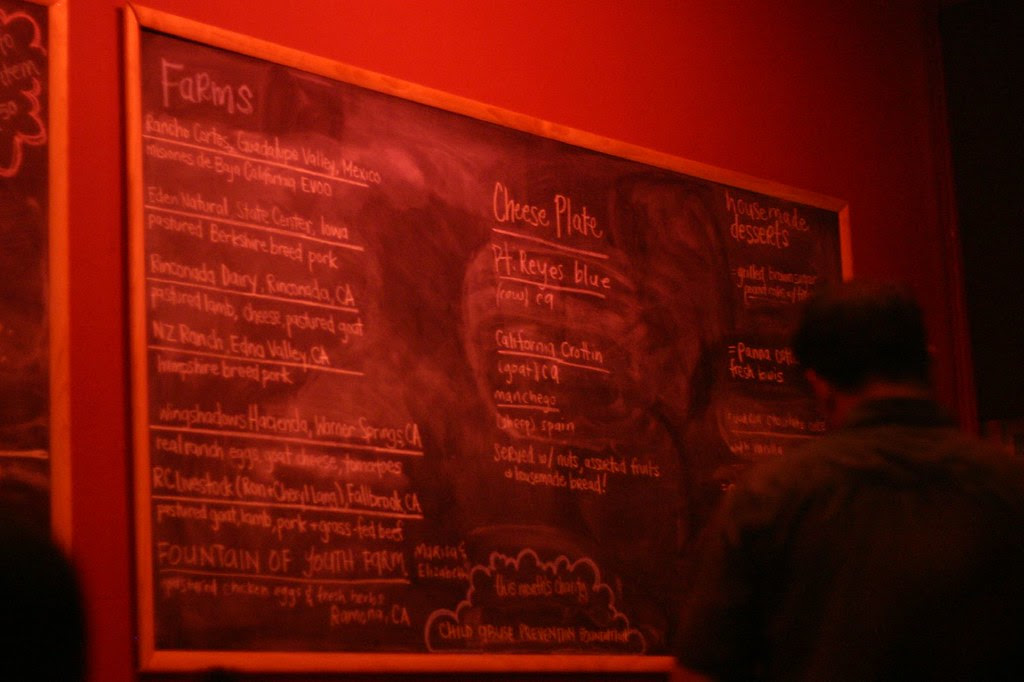 Farms
Rancho Cortes, Guadalupe Valley, Mexico
misiones de Baja California EVOO
Eden Natural State Center, Iowa
pastured Berkshire breed pork
Rinconada Dairy, Rinconada, CA
pastured lamb, cheese, pastured goat
NZ Ranch, Edna Valley, CA
hampshire breed pork
Wingshadows Hacienda, Warner Springs CA
real ranch eggs, goat cheese, tomatoes
RC Livestock (Ron + Cheryl Lang) Fallbrook CA
pastured goat, lamb, pork + grass-fed beef
FOUNTAIN OF YOUTH FARM
Marisa &
Elizabeth
pastured chicken eggs & fresh herbs
Ramona, CA
Cheese Plate
Pt. Reyes blue
(cow) ca
California Crottin
(goat) ca
manchego
(sheep) spain
served w/ nuts, assorted fruits
& housemade bread!
this month's charity
CHILD ABUSE PREVENTION FOUNDATION
housemade
desserts
grilled brown sugar
pound cake w/
Panna
fresh
chocolate
with